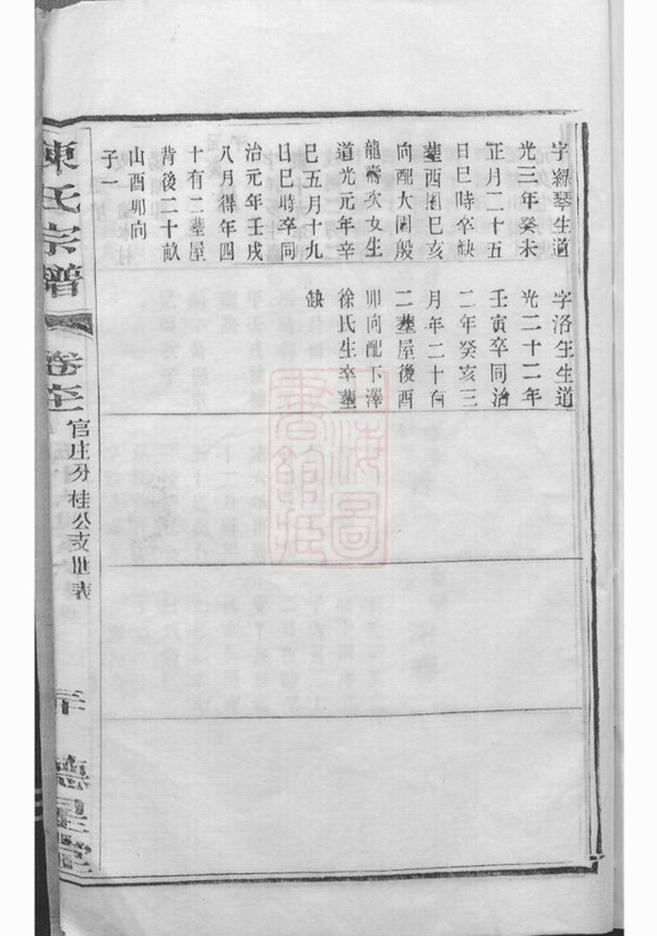 字綠琴生道
光三年癸未
正月二十五
日巳時卒缺
塟西園巳亥
向配大園殷
龍壽次女生
道光元年辛
巳五月十九
日巳時卒同
治元年壬戌
八月得年四
十有二塟屋
背後二十畝
山酉卯向
子一
字洛生生道
光二十二年
壬寅卒同治
二年癸亥三
月年二十有
二塟屋後酉
卯向配下澤
徐氏生卒塟
缺
陳氏宗譜
卷
官庄分桂公支世表
德星堂
上海圖書館藏